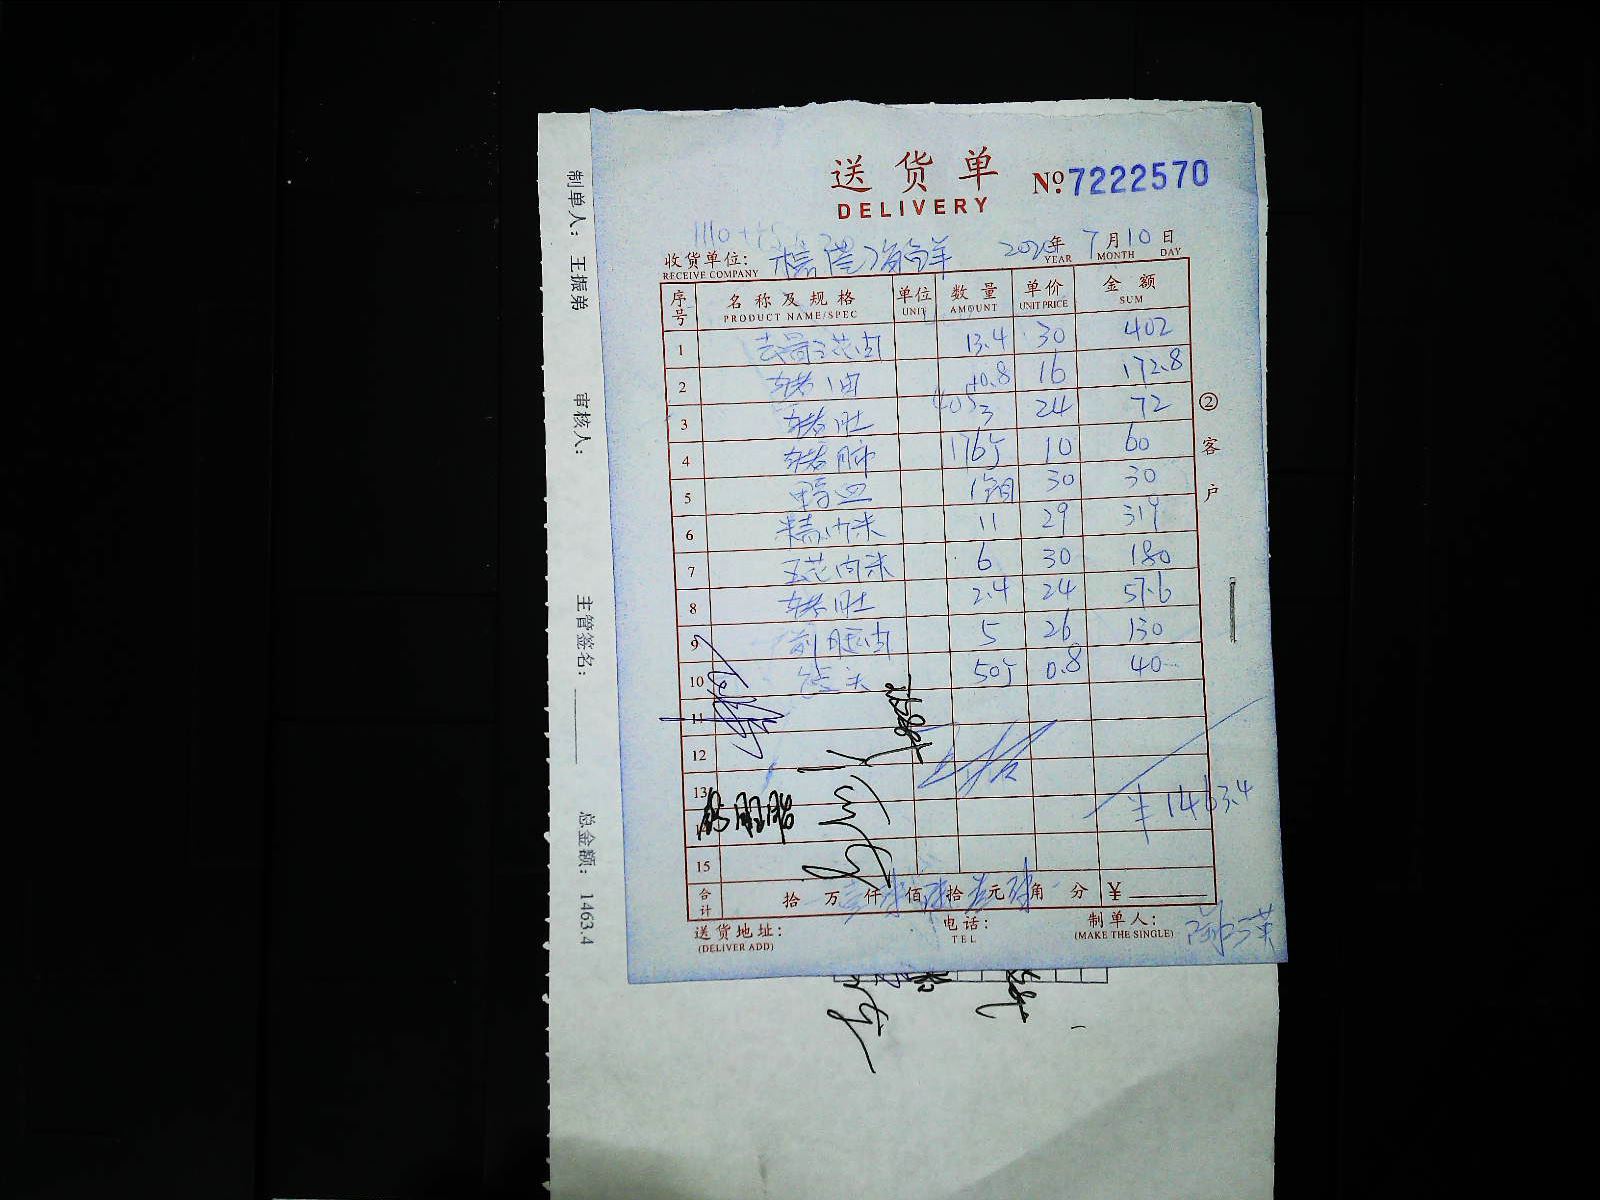 送货单
DELIVERY
№7222570
收货单位: 海鲜 年7月10日
RECEIVE COMPANY YEAR MONTH DAY
序号 名称及规格 单位 数量 单价 金额
PRODUCT NAME/SPEC UNIT AMOUNT UNIT PRICE SUM
1 13.4 30 402
2 猪油 10.8 16 172.8
3 猪肚 3 24 72
4 猪肺 10 60
5 鸭血 1箱 30 30
6 精肉米 11 29 319
7 五花肉米 6 30 180
8 猪肚 2.4 24 57.6
9 前腿肉 5 26 130
10 馒头 50个 0.8 40
11
12
13
¥1463.4
15
合计 拾 万 仟 佰 拾 元 角 分 ¥
送货地址: 电话: 制单人:
(DELIVER ADD) TEL (MAKE THE SINGLE)
②客户
制单人: 王振弟 审核人: 主管签名: 总金额: 1463.4